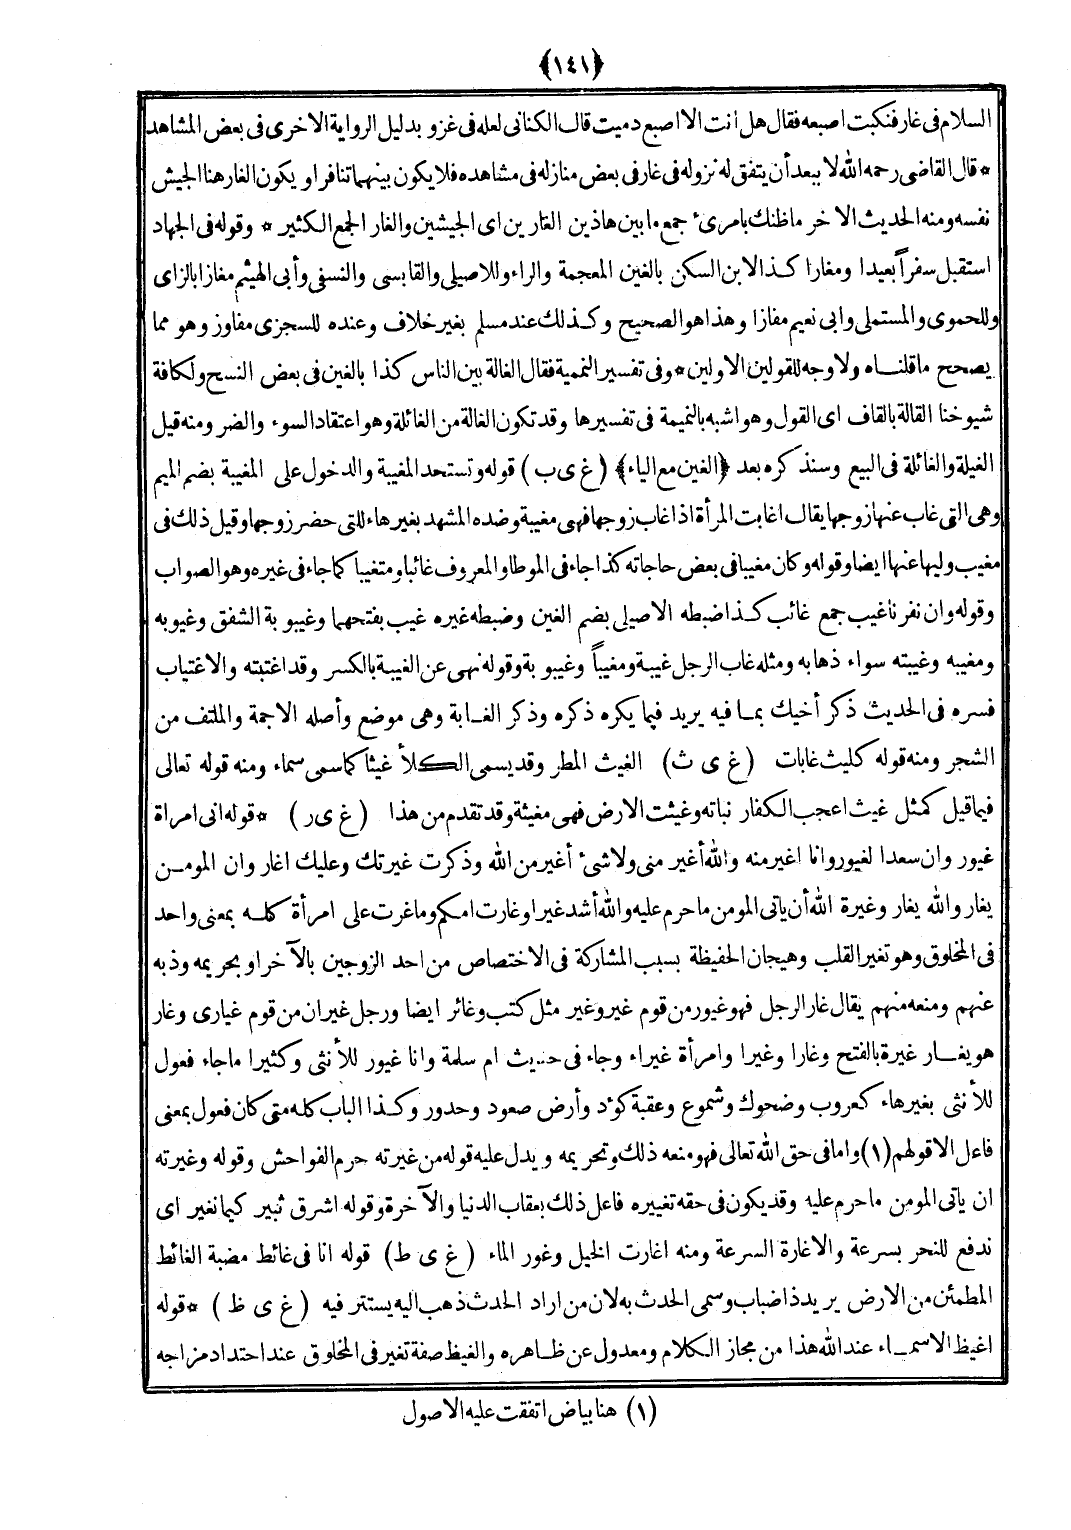 ﴿١٤١﴾
السلام فى غار فنكبت اصبعه فقال هل انت الا اصبع دميت قال الكنانى لعله فى غزو بدليل الرواية الاخرى فى بعض المشاهد
* قال القاضى رحمه الله لا يبعد أن يتفق له نزوله فى غار فى بعض منازله فى مشاهده فلا يكون بينهما تنافر او يكون الغار هنا الجيش
نفسه ومنه الحديث الاخر ماظنك بامرئ جمع ما بين هاذين الغارين اى الجيشين والغار الجمع الكثير * وقوله فى الجهاد
استقبل سفراً بعيدا ومغارا كذا لابن السكن بالغين المعجمة والراء وللاصيلى والقابسى والنسفى وأبى الهيثم مغازا بالزاى
وللحموى والمستملى وابى نعيم مفازا وهذا هو الصحيح وكذلك عند مسلم بغير خلاف وعنده للسجزى مفاوز وهو مما
يصحح ماقلناه ولا وجه للقولين الاولين * وفى تفسير النميمة فقال الغالة بين الناس كذا بالغين فى بعض النسخ ولكافة
شيوخنا القالة بالقاف اى القول وهو اشبه بالنميمة فى تفسيرها وقد تكون الغالة من الغائلة وهو اعتقاد السوء والضر ومنه قيل
الغيلة والغائلة فى البيع وسنذكره بعد ﴿الغين مع الياء﴾ (غ ى ب) قوله وتستحد المغيبة والدخول على المغيبة بضم الميم
وهى التى غاب عنها زوجها يقال اغابت المرأة اذا غاب زوجها فهى مغيبة وضده المشهد بغير هاء للتى حضر زوجها وقيل ذلك فى
مغيب وليها عنها ايضا وقوله وكان مغيبا فى بعض حاجاته كذا جاء فى الموطا والمعروف غائبا ومتغيبا كما جاء فى غيره وهو الصواب
وقوله وان نفرنا غيب جمع غائب كذا ضبطه الاصيلى بضم الغين وضبطه غيره غيب بفتحهما وغيبوبة الشفق وغيوبه
ومغيبه وغيبته سواء ذهابه ومثله غاب الرجل غيبة ومغيباً وغيبوبة وقوله نهى عن الغيبة بالكسر وقد اغتبته والاغتياب
فسره فى الحديث ذكر أخيك بما فيه يريد فيما يكره ذكره وذكر الغابة وهى موضع وأصله الاجمة والملتف من
الشجر ومنه قوله كليث غابات (غ ى ث) الغيث المطر وقد يسمى الكلأ غيثا كما سمى سماء ومنه قوله تعالى
فيما قيل كمثل غيث اعجب الكفار نباته وغيثت الارض فهى مغيثة وقد تقدم من هذا (غ ى ر) * قوله انى امراة
غيور وان سعدا لغيور وانا اغير منه والله أغير منى ولا شئ أغير من الله وذكرت غيرتك وعليك اغار وان المومن
يغار والله يغار وغيرة الله أن ياتى المومن ماحرم عليه والله أشد غيرا وغارت امكم وما غرت على امرأة كله بمعنى واحد
فى المخلوق وهو تغير القلب وهيجان الحفيظة بسبب المشاركة فى الاختصاص من احد الزوجين بالآخر او بحريمه وذبه
عنهم ومنعه منهم يقال غار الرجل فهو غيور من قوم غير وغير مثل كتب وغائر ايضا ورجل غيران من قوم غيارى وغار
هو يغار غيرة بالفتح وغارا وغيرا وامرأة غيراء وجاء فى حديث ام سلمة وانا غيور للأنثى وكثيرا ماجاء فعول
للأنثى بغير هاء كعروب وضحوك وشموع وعقبة كؤد وأرض صعود وحدور وكذا الباب كله متى كان فعول بمعنى
فاعل الا قولهم (١) واما فى حق الله تعالى فهو منعه ذلك وتحريمه ويدل عليه قوله من غيرته حرم الفواحش وقوله وغيرته
ان ياتى المومن ماحرم عليه وقد يكون فى حقه تغييره فاعل ذلك بعقاب الدنيا والآخرة وقوله اشرق ثبير كيما نغير اى
ندفع للنحر بسرعة والاغارة السرعة ومنه اغارت الخيل وغور الماء (غ ى ط) قوله انا فى غائط مضبة الغائط
المطمئن من الارض يريد ذا ضباب وسمى الحدث به لان من اراد الحدث ذهب اليه يستتر فيه (غ ى ظ) * قوله
اغيظ الاسماء عند الله هذا من مجاز الكلام ومعدول عن ظاهره والغيظ صفة تغير فى المخلوق عند احتداد مزاجه
(١) هنا بياض اتفقت عليه الاصول